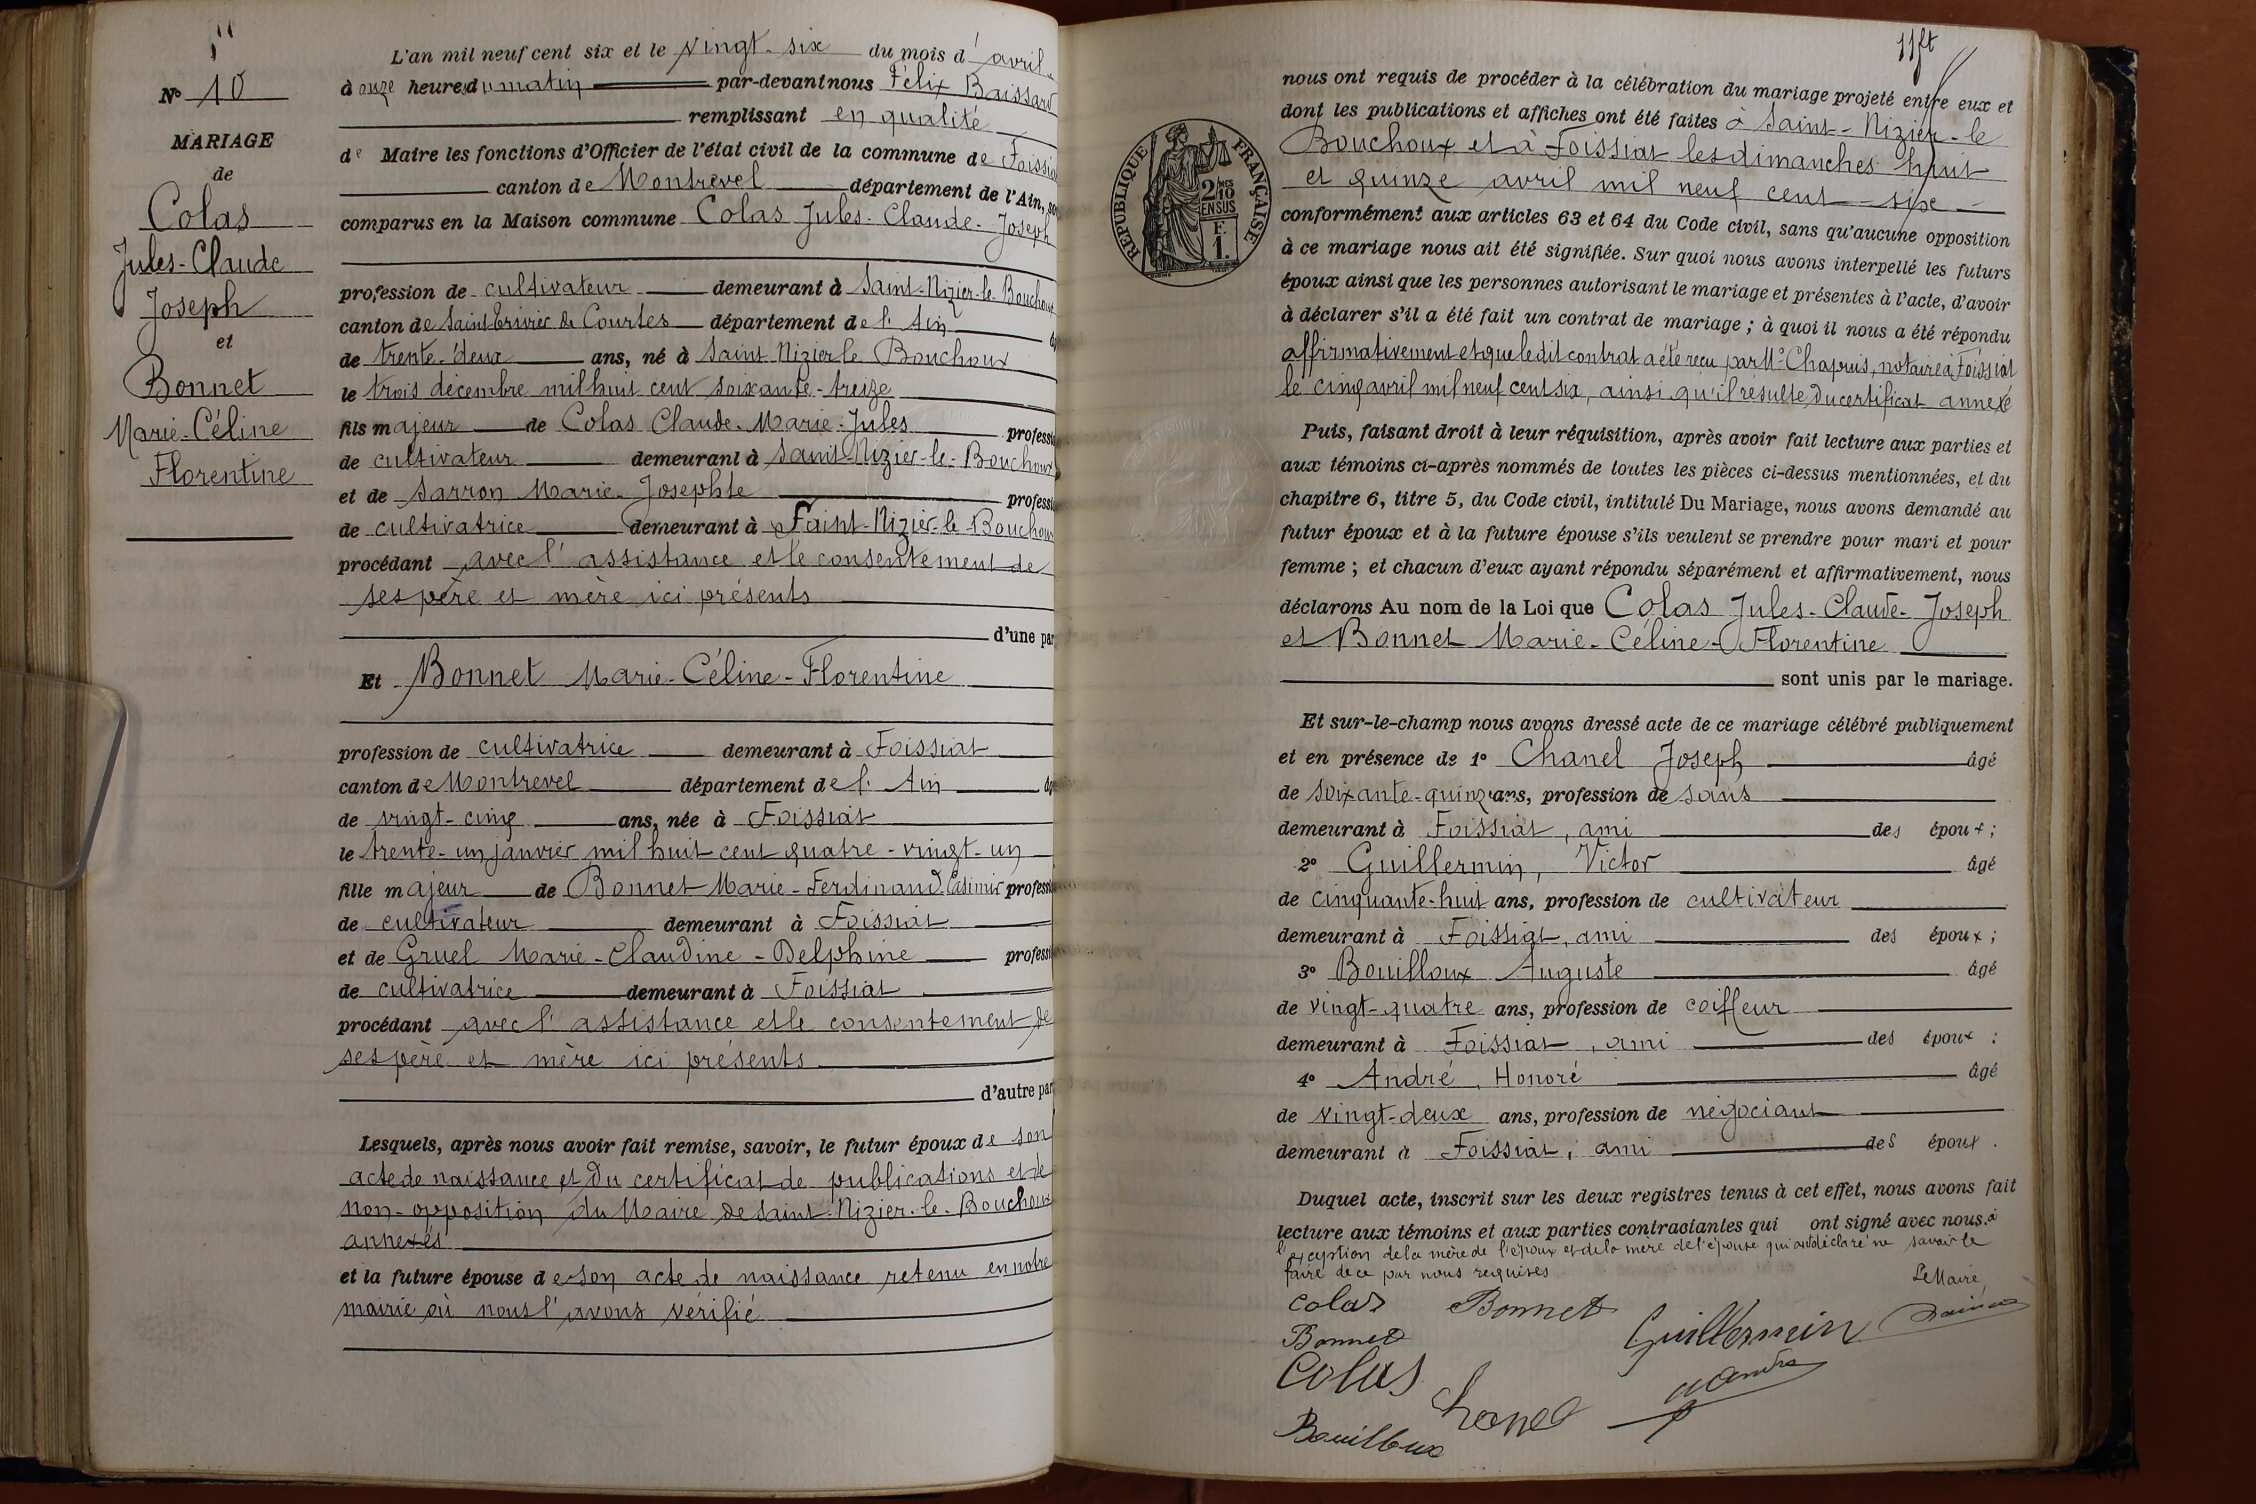 N° 10
MARIAGE
de
Colas
Jules-Claude
Joseph
et
Bonnet
Marie-Céline
Florentine
L'an mil neuf cent six et le vingt-six du mois d'avril
à onze heures du matin par-devant nous Félix
remplissant en qualité
de Maire les fonctions d'Officier de l'état civil de la commune de Foissia
canton de Montrevel département de l'Ain, so
comparus en la Maison commune Colas Jules-Claude-Joseph
profession de cultivateur demeurant à Saint-Nizier-le-Bouchoux
canton de Saint Trivier de Courtes département de l'Ain
de trente-deux ans, né à Saint-Nizier le Bouchoux
le trois décembre mil huit cent soixante-treize
fils majeur de Colas Claude-Marie-Jules professi
de cultivateur demeurant à Saint-Nizier-le-Bouchoux
et de Sarron Marie-Josephte professi
de cultivatrice demeurant à Saint-Nizier-le-Bouchoux
procédant avec l'assistance et le consentement de
ses père et mère ici présents
d'une par
Et Bonnet Marie-Céline-Florentine
profession de cultivatrice demeurant à Foissiat
canton de Montrevel département de l'Ain âg
de vingt-cinq ans, née à Foissiat
le trente-un janvier mil huit cent quatre-vingt-un
fille majeur de Bonnet Marie-Ferdinand Casimir professi
de cultivateur demeurant à Foissiat
et de Gruel Marie-Claudine-Delphine professi
de cultivatrice demeurant à Foissiat
procédant avec l'assistance et le consentement de
ses père et mère ici présents
d'autre par
Lesquels, après nous avoir fait remise, savoir, le futur époux de son
acte de naissance et du certificat de publications et de
non-opposition du Maire de Saint-Nizier-le-Bouchoux
annexés
et la future épouse de son acte de naissance retenu en notre
mairie où nous l'avons vérifié
11 ft
RÉPUBLIQUE FRANÇAISE
2/10 EN SUS
F. 1.
nous ont requis de procéder à la célébration du mariage projeté entre eux et
dont les publications et affiches ont été faites à Saint-Nizier-le
Bouchoux et à Foissiat les dimanches huit
et quinze avril mil neuf cent-six
conformément aux articles 63 et 64 du Code civil, sans qu'aucune opposition
à ce mariage nous ait été signifiée. Sur quoi nous avons interpellé les futurs
époux ainsi que les personnes autorisant le mariage et présentes à l'acte, d'avoir
à déclarer s'il a été fait un contrat de mariage ; à quoi il nous a été répondu
affirmativement et que ledit contrat a été reçu par Me Chapuis, notaire à Foissiat
le cinq avril mil neuf cent six, ainsi qu'il résulte du certificat annexé
Puis, faisant droit à leur réquisition, après avoir fait lecture aux parties et
aux témoins ci-après nommés de toutes les pièces ci-dessus mentionnées, et du
chapitre 6, titre 5, du Code civil, intitulé Du Mariage, nous avons demandé au
futur époux et à la future épouse s'ils veulent se prendre pour mari et pour
femme ; et chacun d'eux ayant répondu séparément et affirmativement, nous
déclarons Au nom de la Loi que Colas Jules-Claude-Joseph
et Bonnet Marie-Céline-Florentine
sont unis par le mariage.
Et sur-le-champ nous avons dressé acte de ce mariage célébré publiquement
et en présence de 1° Chanel Joseph âgé
de soixante-quinze ans, profession de sans
demeurant à Foissiat, ami des époux ;
2° Guillermin, Victor âgé
de cinquante-huit ans, profession de cultivateur
demeurant à Foissiat, ami des époux ;
3° Bouilloux Auguste âgé
de vingt-quatre ans, profession de coiffeur
demeurant à Foissiat, ami des époux :
4° André, Honoré âgé
de vingt-deux ans, profession de négociant
demeurant à Foissiat, ami des époux.
Duquel acte, inscrit sur les deux registres tenus à cet effet, nous avons fait
lecture aux témoins et aux parties contractantes qui ont signé avec nous à
l'exception de la mère de l'époux et de la mère de l'épouse qui ont déclaré ne savoir le
faire de ce par nous requises
Le Maire
Colas Bonnet Guillermin
Bonnet
Colas
Chanel
André
Bouilloux